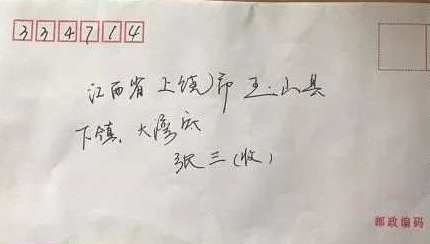 334714
江西省上饶市玉山县
下镇.大湾底
张三(收)
邮政编码